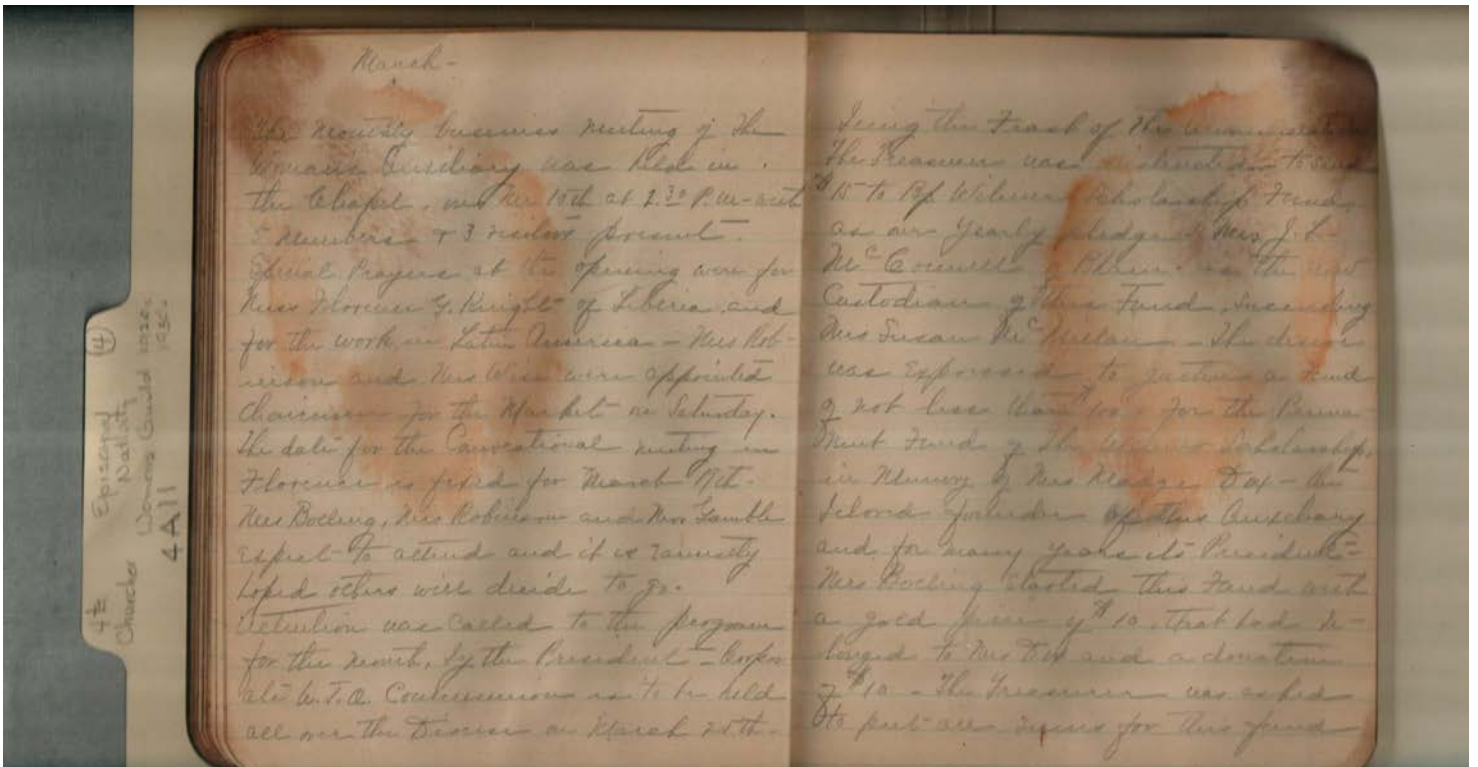 March -
The Monthly business meeting of the
Woman's Auxiliary was held in
the Chapel, on the 10th at 2.30 P.M. - with
5 members + 3 visitors present.
Special Prayers at the opening were for
Miss Florence G. Knight of Liberia and
for the work in Latin America - Mrs Rob-
inson and Mrs Wise were appointed
Chairmen for the Market on Saturday.
The date for the Convocational meeting in
Florence is fixed for March 17th.
Mrs Boeling, Mrs Robinson and Mrs Gamble
expect to attend and it is earnestly
hoped others will decide to go.
Attention was called to the program
for the month, by the President - Corpor
ate W.T.O. Communion is to be held
all over the Diocese on March 25th -
being the Feast of the Annunciation
The Treasurer was instructed to send
$15 to Bp Wilmer Scholarship Fund,
as our yearly pledge Mrs J. L.
McConnell of Bham is the new
Custodian of this Fund, succeeding
Mrs Susan McMillan - The desire
was expressed to gather a fund
of not less than $100 for the Perma-
nent Fund of the Scholarship,
in Memory of Mrs Dox - the
beloved founder of this Auxiliary
and for many years its President -
Mrs Boeling started this Fund with
a gold piece of $10 that had be-
longed to Mrs Dox and a donation
of $10 - The Treasurer was asked
to put all sums for this fund
4 A11
Womens Guild 1920-
Churches
Episcopal
Nativity
14